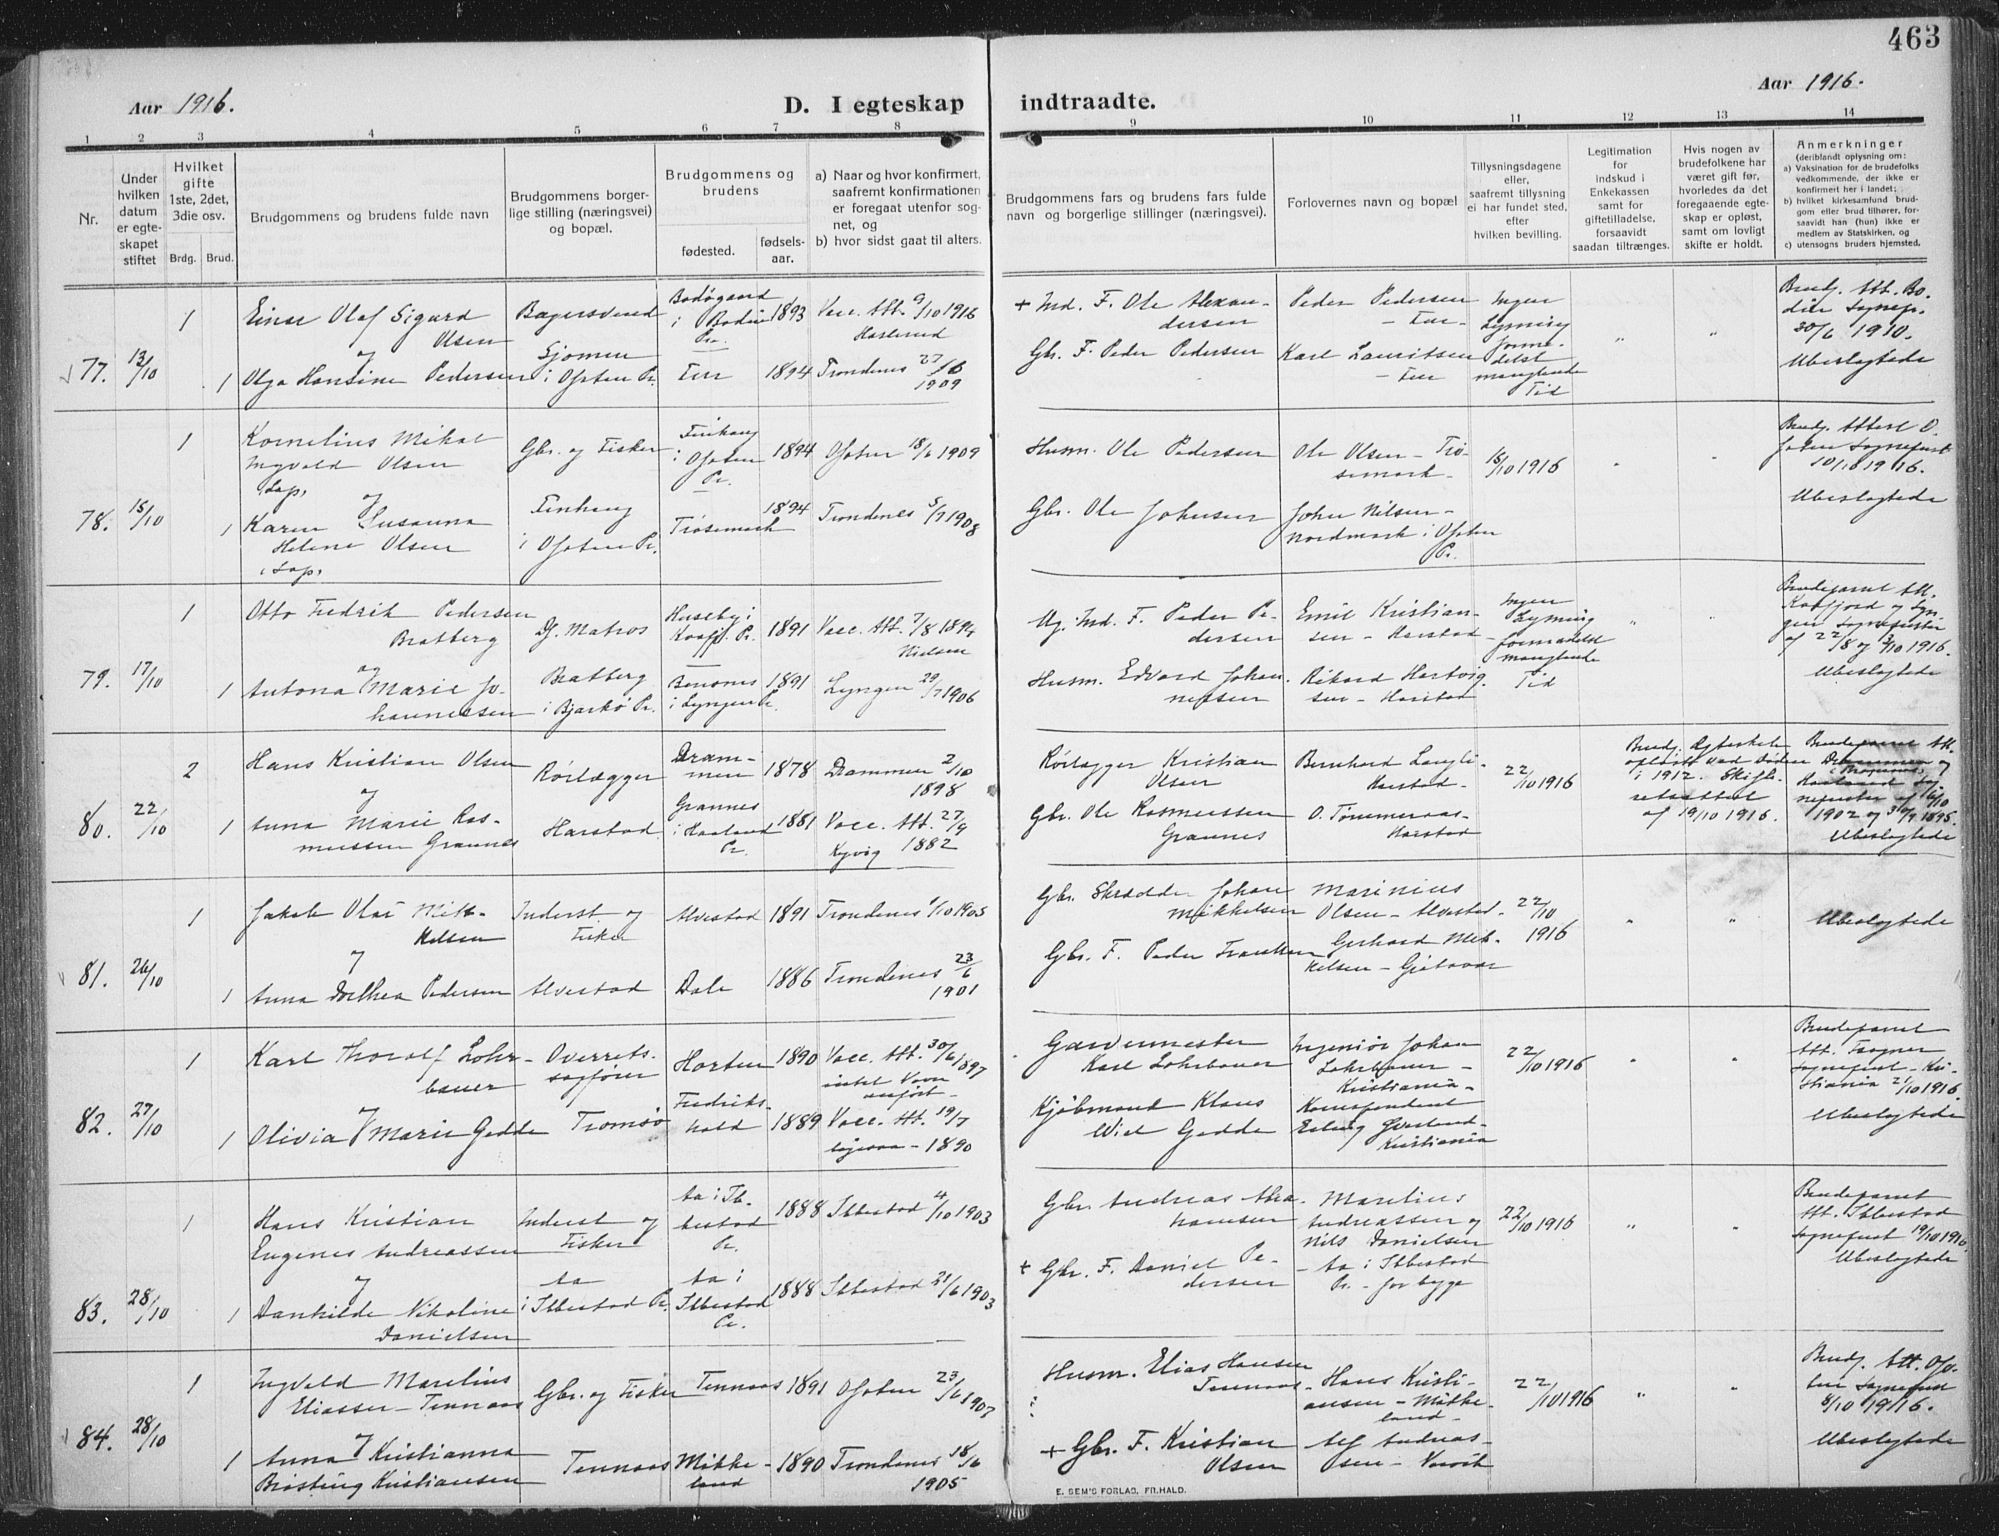 463
Aar 1916.
D. I egteskap indtraadte.
Aar 1916.
1 2 3 4 5 6 7 8 9 10 11 12 13 14
Nr.
Under hvilken datum er egte-skapet stiftet
Hvilket gifte 1ste, 2det, 3die osv.
Brdg. Brud.
Brudgommens og brudens fulde navn
Brudgommens borger-lige stilling (næringsvei) og bopæl.
Brudgommens og brudens
fødested.
fødsels-aar.
a) Naar og hvor konfirmert, saafremt konfirmationen er foregaat utenfor sog-net, og
b) hvor sidst gaat til alters.
Brudgommens fars og brudens fars fulde navn og borgerlige stillinger (næringsvei).
Forlovernes navn og bopæl
Tillysningsdagene eller, saafremt tillysning ei har fundet sted, efter hvilken bevilling.
Legitimation for indskud i Enkekassen samt for giftetilladelse, forsaavidt saadan tiltrænges.
Hvis nogen av brudefolkene har været gift før, hvorledes da det foregaaende egte-skap er opløst, samt om lovligt skifte er holdt.
Anmerkninger
(deriblandt oplysning om:
a) Vaksination for de brudefolks vedkommende, der ikke er konfirmert her i landet;
b) hvilket kirkesamfund brud-gom eller brud tilhører, for-saavidt han (hun) ikke er medlem av Statskirken, og
c) utensogns bruders hjemsted.
77. 13/10
1
Einar Olaf Sigurd Olsen
og
1 Olga Hansine Pedersen
Bagersvend
Sjomen i Ofoten Pr.
Bodøgaard i Bodin Pr. 1893
1894
Vacc. Att. 9/10 1916
Trondenes 27/6 1909
+ Ind. F. Ole Alexan-dersen
Gbr. F. Peder Pedersen
Peder Pedersen
Karl Lauritsen
Ingen Lysning forme-delst manglende Tid
Brudg. Att. Bo-din Sognep. 30/6 1910.
Ubeslægtede
78. 15/10
1
Kornelius Mikal Ingvald Olsen
Lap,
og
1 Karen Susanna Helene Olsen
Lap,
Gbr. og Fisker
i Ofoten Pr.
i Ofoten Pr.
1894 Ofoten 18/6 1909
Trøsemark 1894 Trondenes 5/7 1908
Husm. Ole Pedersen
Gbr. Ole Johnsen
Ole Olsen - Trø-semark -
John Nilsen - Nordmark i Ofoten Pr.
15/10 1916
Brudg. Attest O-foten Sogneprest 10/10 1916.
Ubeslægtede
79. 17/10
1
Otto Fredrik Pedersen Bratberg
og
1 Antona Marie Jo-hannessen
Df. Matros
Bratberg i Bjarkø Pr.
Huseby i Kaafj. Pr. 1891 Vacc. Att. 7/8 1894 Nielsen
i Lyngen Pr. 1891 Lyngen 29/7 1906
Ug. Ind. F. Peder Pe-dersen
Husm. Edvard Johan-nessen
Emil Kristian-sen - Harstad -
Rikard Hartvig-sen - Harstad
Ingen Lysning formedelst manglende Tid
Brudeparret Att. Kaafjord og Lyn-gen Sognepræster af 22/8 og 2/10 1916.
Ubeslægtede
80. 22/10
2
Hans Kristian Olsen
og
1 Anna Marie Ras-mussen Grannes
Rørlægger
Harstad
Dram-men 1878 Drammen 2/10 1898
Grannes i Haaland Pr. 1881 Vacc. Att. 27/9 1882
Rørlægger Kristian Olsen
Gbr. Ole Rasmussen Grannes
Bernhard Langli - Harstad -
O. Tømmeraas - Harstad
22/10 1916
Brudg. Egteskab opløst ved Døden i 1912. Skifte-retsattest af 19/10 1916.
Brudeparret Att.
Ubeslægtede
81. 26/10
1
Jakob Olai Mik-kelsen
og
1 Anna Dorthea Pedersen
Inderst og Fisker
Alvestad
Alvestad 1891 Trondenes 1/10 1905
Dale 1886 Trondenes 23/6 1901
Gbr. Skrædder Johan Mikkelsen
Gbr. F. Peder Frantsen
Marinius Olsen - Alvestad -
Gerhard Mik-kelsen -
22/10 1916
Ubeslægtede
82. 27/10
1
Karl Thorolf Lohr-bauer
og
1 Olivia Marie Gedde
Overrets-sagfører
Tromsø
Horten 1890 Vacc. Att. 30/6 1897 intet Navn anført -
Fredriks-hald 1889 Vacc. Att. 19/7 - 1890
Garvermester Karl Lohrbauer
Kjøbmand Klaus Wiel Gedde
Ingeniør Johan Lohrbauer - Kristiania -
Korrespondent Erling - Kristiania
22/10 1916
Brudeparret Att. Tromsø Sogneprest - Kri-stiania 21/10 1916.
Ubeslægtede
83. 28/10
1
Hans Kristian Eugenes Andreassen
og
1 Dankilde Nikoline Danielsen
Inderst og Fisker
Aa i Ibbestad Pr.
Aa i Ib-bestad Pr. 1888 Ibbestad 4/10 1903
Aa i Ibbestad Pr. 1888 Ibbestad 21/6 1903
Gbr. Andreas Abra-hamsen
+ Gbr. F. Daniel Pe-dersen
Marelius Andreassen og Nils Danielsen - Aa i Ibbestad Pr. - for begge
22/10 1916
Brudeparret Att. Ibbestad Sogneprest 19/10 1916.
Ubeslægtede
84. 28/10
1
Ingvald Marelius Eliassen - Tennaas
og
1 Anna Kristianna Kristiansen
Gbr. og Fisker
Tennaas
Tennaas 1891 Ofoten 23/6 1907
Mikke-land 1890 Trondenes 18/6 1905
Husm. Elias Hansen Tennaas -
+ Gbr. F. Kristian Olsen
Hans Kristi-ansen - Mikke-land -
Alf Andreas-sen -
22/10 1916
Brudg. Att. Ofo-ten Sogneprest 8/10 1916.
Ubeslægtede
E. SEM'S FORLAG, FR.HALD.